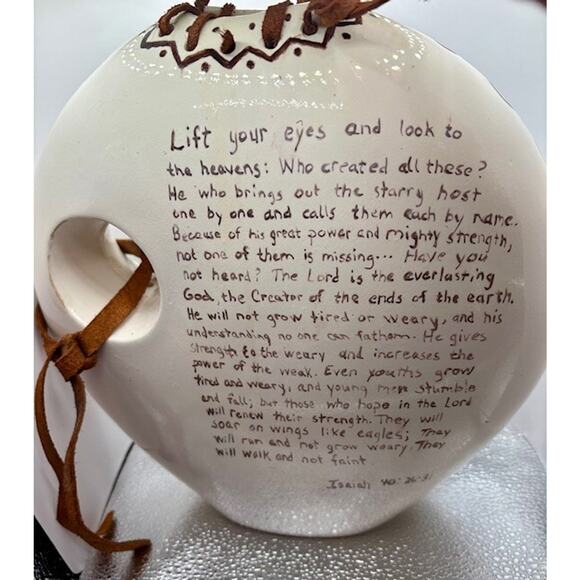 Lift your eyes and look to
the heavens: Who created all these?
He who brings out the starry host
one by one and calls them each by name.
Because of his great power and mighty strength,
not one of them is missing... Have you
not heard? The Lord is the everlasting
God, the Creator of the ends of the earth.
He will not grow tired or weary, and his
understanding no one can fathom. He gives
strength to the weary and increases the
power of the weak. Even youths grow
tired and weary, and young men stumble
and fall; but those who hope in the Lord
will renew their strength. They will
soar on wings like eagles; They
will run and not grow weary, They
will walk and not faint
Isaiah 40:26-31